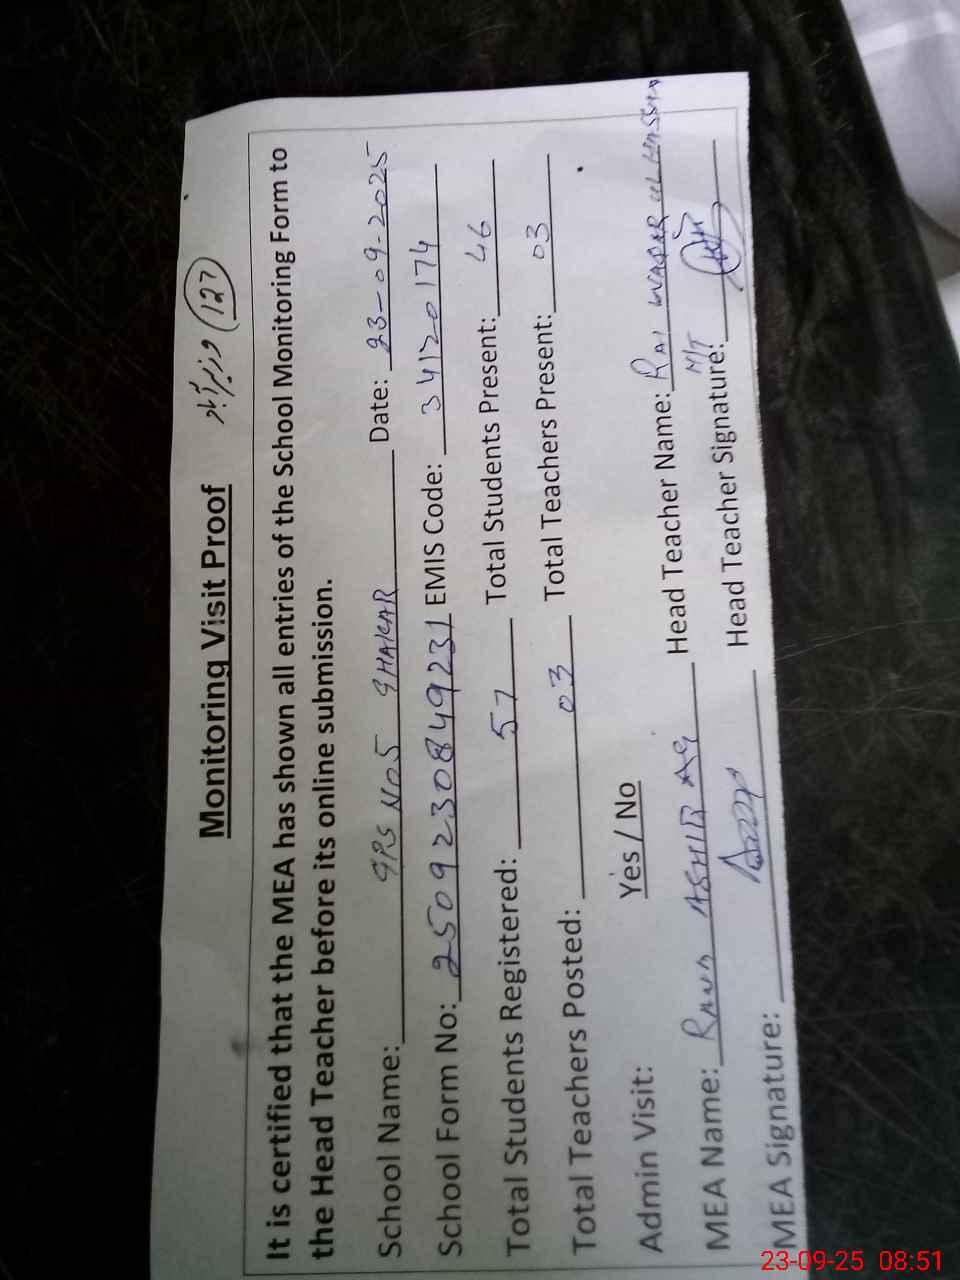 Monitoring Visit Proof (127)
It is certified that the MEA has shown all entries of the School Monitoring Form to
the Head Teacher before its online submission.
School Name: GPS No.5 GHAKAR Date: 23-09-2025
School Form No: 2509230849231 EMIS Code: 34120174
Total Students Registered: 57 Total Students Present: 46
Total Teachers Posted: 03 Total Teachers Present: 03
Admin Visit: Yes / No
MEA Name: RANA ASHIQ Head Teacher Name: RAI WAQAR UL HASSAN
MEA Signature: Head Teacher Signature:
23-09-25 08:51